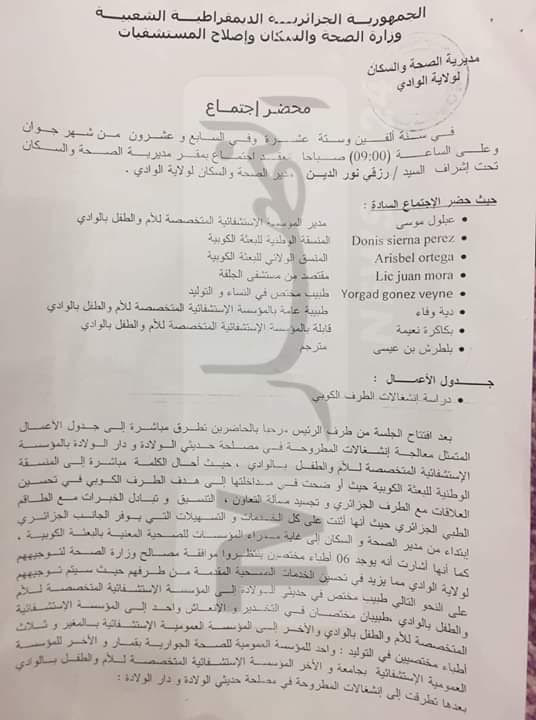 الجمهورية الجزائرية الديمقراطية الشعبية
وزارة الصحة والسكان وإصلاح المستشفيات
مديرية الصحة والسكان
لولاية الوادي
محضر إجتماع
في سنة ألفين وستة عشرة وفي السابع و عشرون من شهر جوان
و على الساعة (09:00) صباحا إنعقد إجتماع بمقر مديرية الصحة والسكان
تحت إشراف السيد / رزقي نور الدين مدير الصحة والسكان لولاية الوادي .
حيث حضر الإجتماع السادة :
• عبلول موسى مدير المؤسسة الإستشفائية المتخصصة للأم والطفل بالوادي
• Donis sierna perez المنسقة الوطنية للبعثة الكوبية
• Arisbel ortega المنسق الولائي للبعثة الكوبية
• Lic juan mora مقتصد من مستشفى الجلفة
• Yorgad gonez veyne طبيب مختص في النساء و التوليد
• دية وفاء طبيبة عامة بالمؤسسة الإستشفائية المتخصصة للأم والطفل بالوادي
• بكاكرة نعيمة قابلة بالمؤسسة الإستشفائية المتخصصة للأم والطفل بالوادي
• بلطرش بن عيسى مترجم
جدول الأعمال :
• دراسة إنشغالات الطرف الكوبي
بعد افتتاح الجلسة من طرف الرئيس مرحبا بالحاضرين تطرق مباشرة إلى جدول الأعمال
المتمثل معالجة إنشغالات المطروحة في مصلحة حديثي الولادة و دار الولادة بالمؤسسة
الإستشفائية المتخصصة للأم والطفل بالوادي ، حيث أحال الكلمة مباشرة إلى المنسقة
الوطنية للبعثة الكوبية حيث أو ضحت في مداخلتها إلى هدف الطرف الكوبي في تحسين
العلاقات مع الطرف الجزائري و تجسيد مسألة التعاون ، التنسيق و تبادل الخبرات مع الطاقم
الطبي الجزائري حيث أنها أثنت على كل الخدمات و التسهيلات التي يوفر الجانب الجزائري
إبتداء من مدير الصحة و السكان إلى غاية مدراء المؤسسات للصحية المعنية بالبعثة الكوبية .
كما أنها أشارت أنه يوجد 06 أطباء مختصين ينتظروا موافقة مصالح وزارة الصحة لتوجيههم
لولاية الوادي مما يزيد في تحسين الخدمات الصحية المقدمة من طرفهم حيث سيتم توجيههم
على النحو التالي طبيب مختص في حديثي الولادة إلى المؤسسة الإستشفائية المتخصصة للأم
والطفل بالوادي ،طبيبان مختصان في التخدير و الإنعاش واحد إلى المؤسسة الإستشفائية
المتخصصة للأم والطفل بالوادي والأخر إلى المؤسسة العمومية الإستشفائية بالمغير و ثلاث
أطباء مختصيين في التوليد : واحد للمؤسسة العمومية للصحة الجوارية بقمار و الأخر للمؤسسة
العمومية الإستشفائية بجامعة و الأخر المؤسسة الاستشفائية المتخصصة للأم والطفل بالوادي
بعدها تطرقت إلى إنشغالات المطروحة في مصلحة حديثي الولادة و دار الولادة :